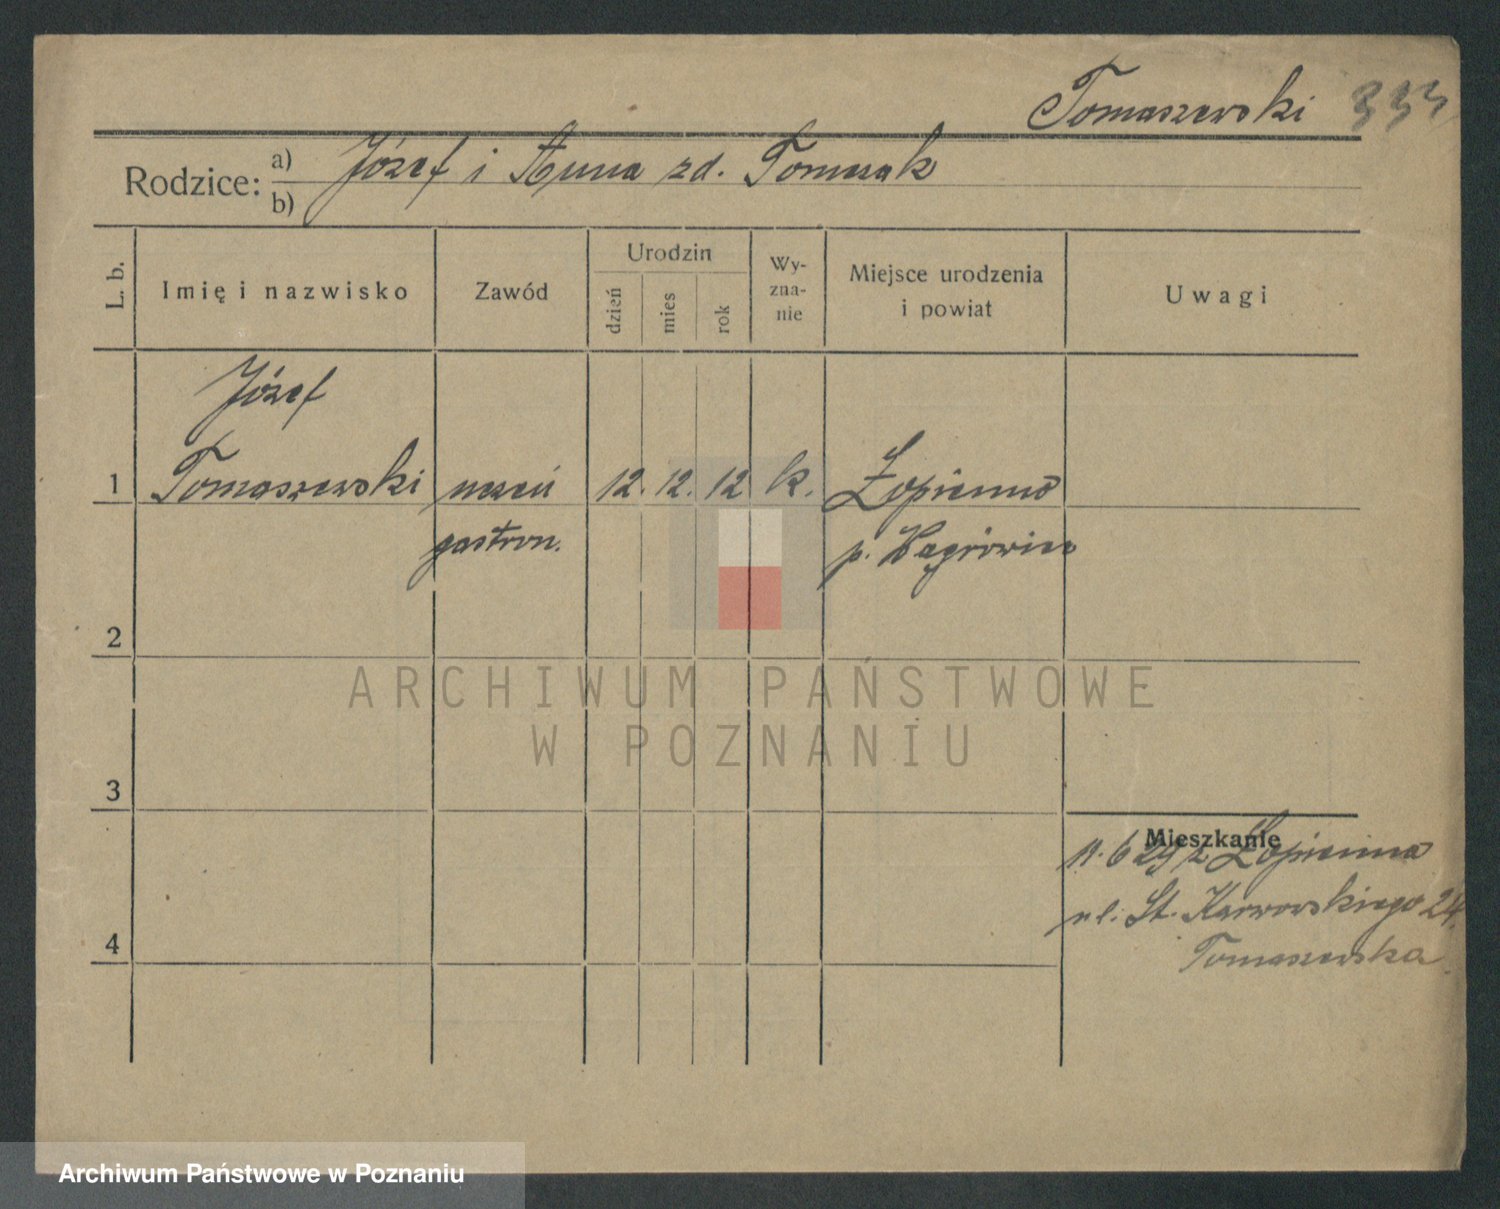 Tomaszewski 333
Rodzice: a) Józef i Anna zd. Tomczak
b)
L. b.
Imię i nazwisko
Zawód
Urodzin
dzień
mies
rok
Wy-
zna-
nie
Miejsce urodzenia
i powiat
Uwagi
Józef
1 Tomaszewski uczeń 12. 12. 12 k. Łopienno
gastron. p. Wągrowiec
2
ARCHIWUM PAŃSTWOWE
W POZNANIU
3
Mieszkanie
Łopienna
ul. St. Karwowskiego 24.
Tomaszewska
4
Archiwum Państwowe w Poznaniu